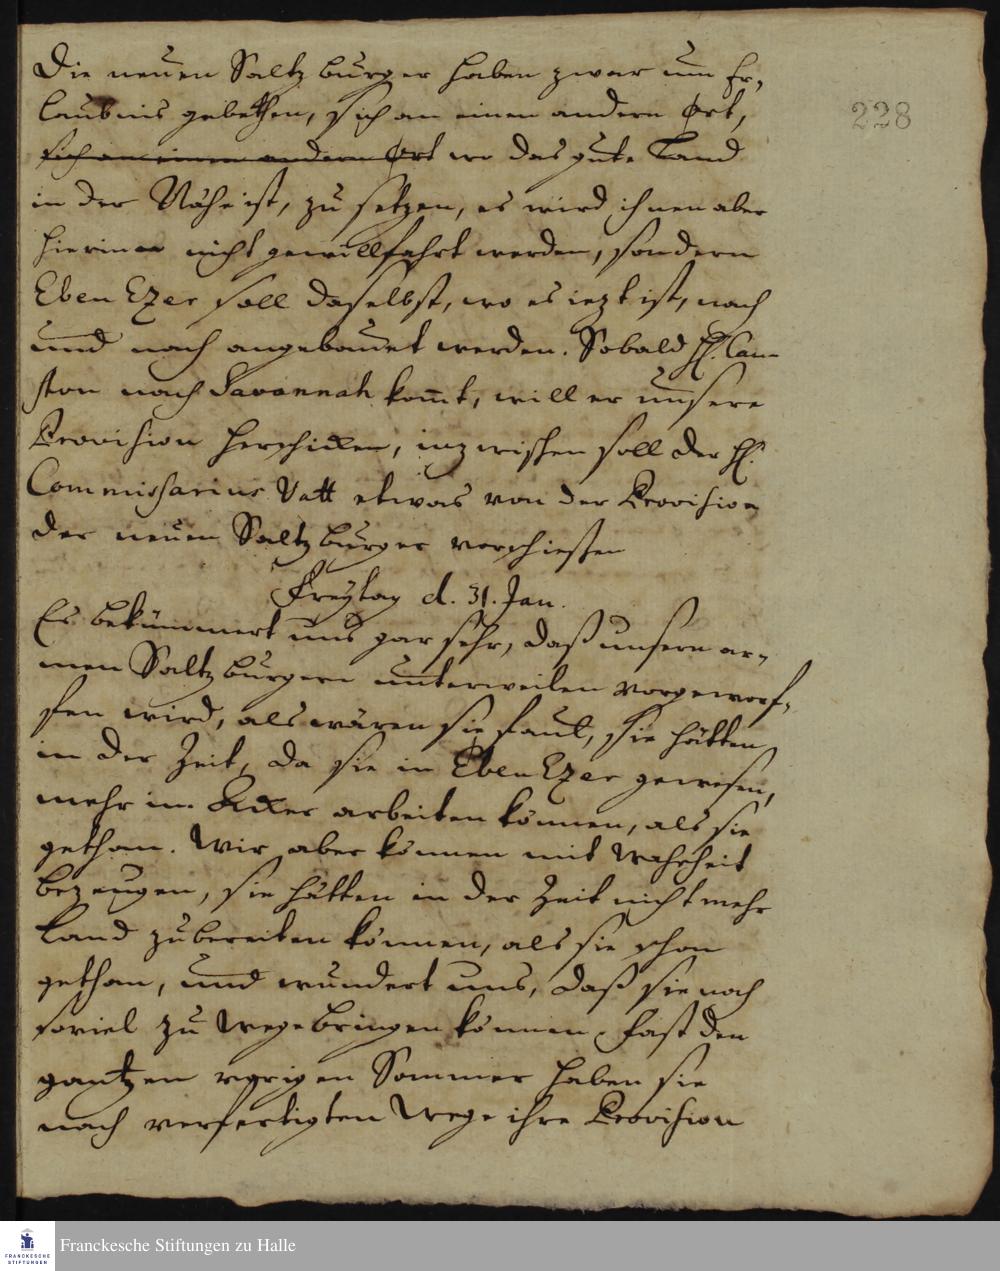 Die neuen Saltzburger haben zwar um Er-
laubnis gebethen, sich an einen andern Ort,
sich an einen andern Ort wo das gute Land
in der Nähe ist, zu setzen, es wird ihnen aber
hierinn nicht gewillfahrt werden, sondern
Eben Ezer soll daselbst, wo es iezt ist, nach
und nach angebauet werden. Sobald H. Cau-
ston nach Savannah kom̄t, will er unsere
Provision herschicken, inzwischen soll der H.
Commissarius Vatt etwas von der Provision
der neuen Saltzburger vorschießen
Freytag d. 31. Jan.
Es bekümmert uns gar sehr, daß unsern ar-
men Saltzburgern unterweilen vorgeworf-
fen wird, als wären sie faul, sie hätten
in der Zeit, da sie in Eben Ezer gewesen,
mehr im Acker arbeiten können, als sie
gethan. Wir aber können mit Wahrheit
bezeugen, sie hätten in der Zeit nicht mehr
Land zubereiten können, als sie schon
gethan, und wundert uns, daß sie noch
soviel zu Wege bringen können. Fast den
gantzen vorigen Sommer haben sie
nach verfertigten Wege ihre Provision
228
Franckesche Stiftungen zu Halle
FRANCKESCHE
STIFTUNGEN